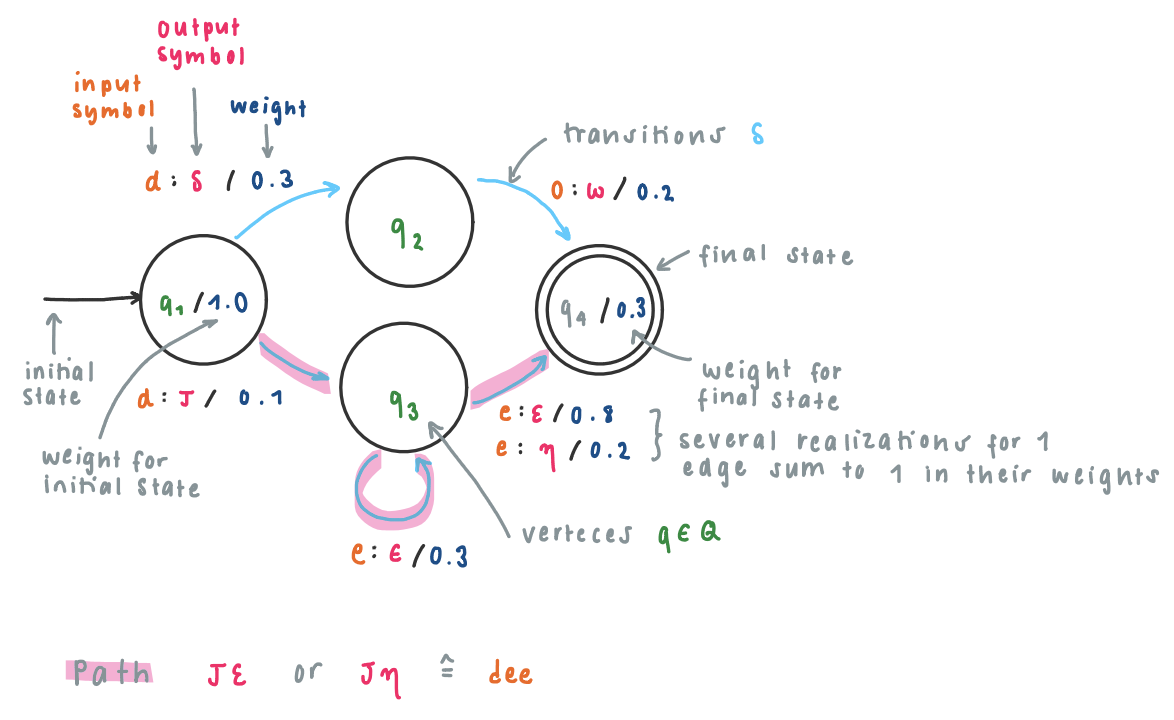 output
symbol
input
symbol
weight
d : δ / 0.3
transitions δ
o : ω / 0.2
q₂
final state
q₁ / 1.0
q₄ / 0.3
initial
state
d : J / 0.1
q₃
weight for
final state
e : ε / 0.8
e : η / 0.2
several realizations for 1
edge sum to 1 in their weights
weight for
initial state
verteces q ∈ Q
e : ε / 0.3
Path Jε or Jη ≙ dee